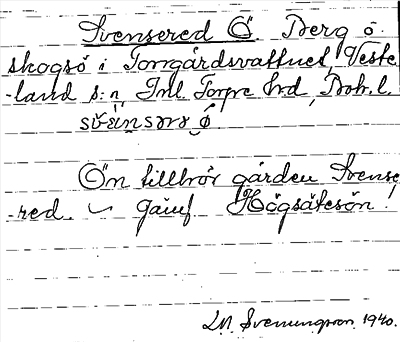 Svensered Ö. Berg o.
skogsö i Torrgårdsvattnet, Väste
-land s:n, Inl. Torpe hrd, Boh. l.
Ön tillhör gården Svense
-red. ~ Jämf. Högsätesön!
Svenungsson 1940.